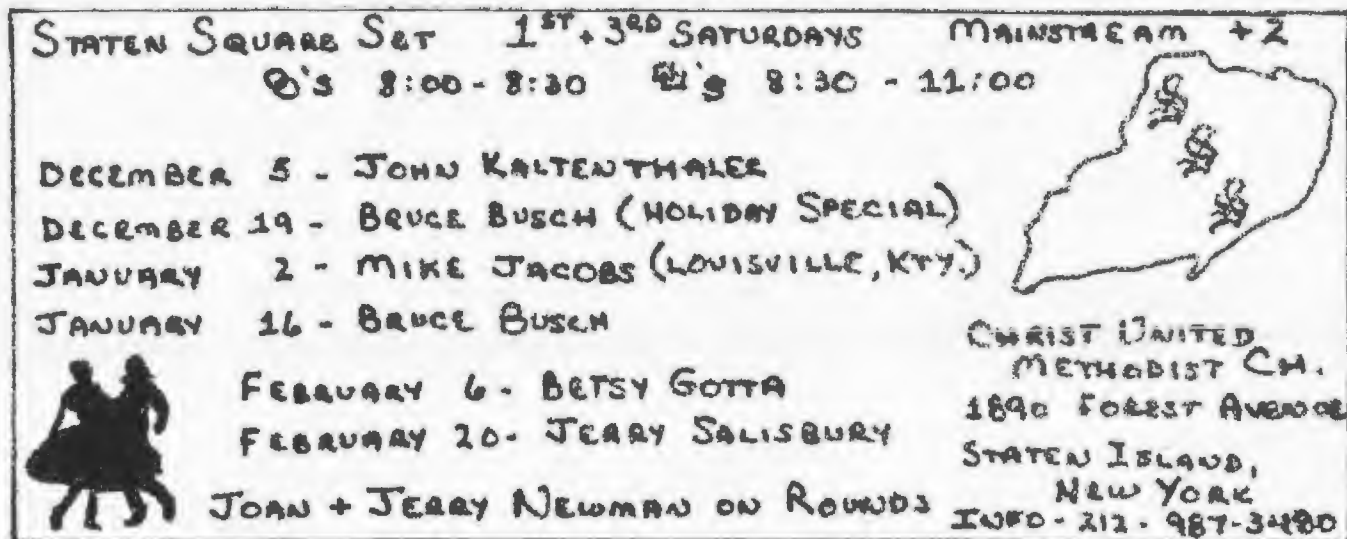 STATEN SQUARE SET 1ST + 3RD SATURDAYS MAINSTREAM + 2
's 8:00 - 8:30 's 8:30 - 11:00
DECEMBER 5 - JOHN KALTENTHALER
DECEMBER 19 - BRUCE BUSCH (HOLIDAY SPECIAL)
JANUARY 2 - MIKE JACOBS (LOUISVILLE, KTY.)
JANUARY 16 - BRUCE BUSCH
FEBRUARY 6 - BETSY GOTTA
FEBRUARY 20 - JERRY SALISBURY
JOAN + JERRY NEWMAN ON ROUNDS
CHRIST UNITED
METHODIST CH.
1890 FOREST AVENUE
STATEN ISLAND,
NEW YORK
INFO - 212 - 987-3480